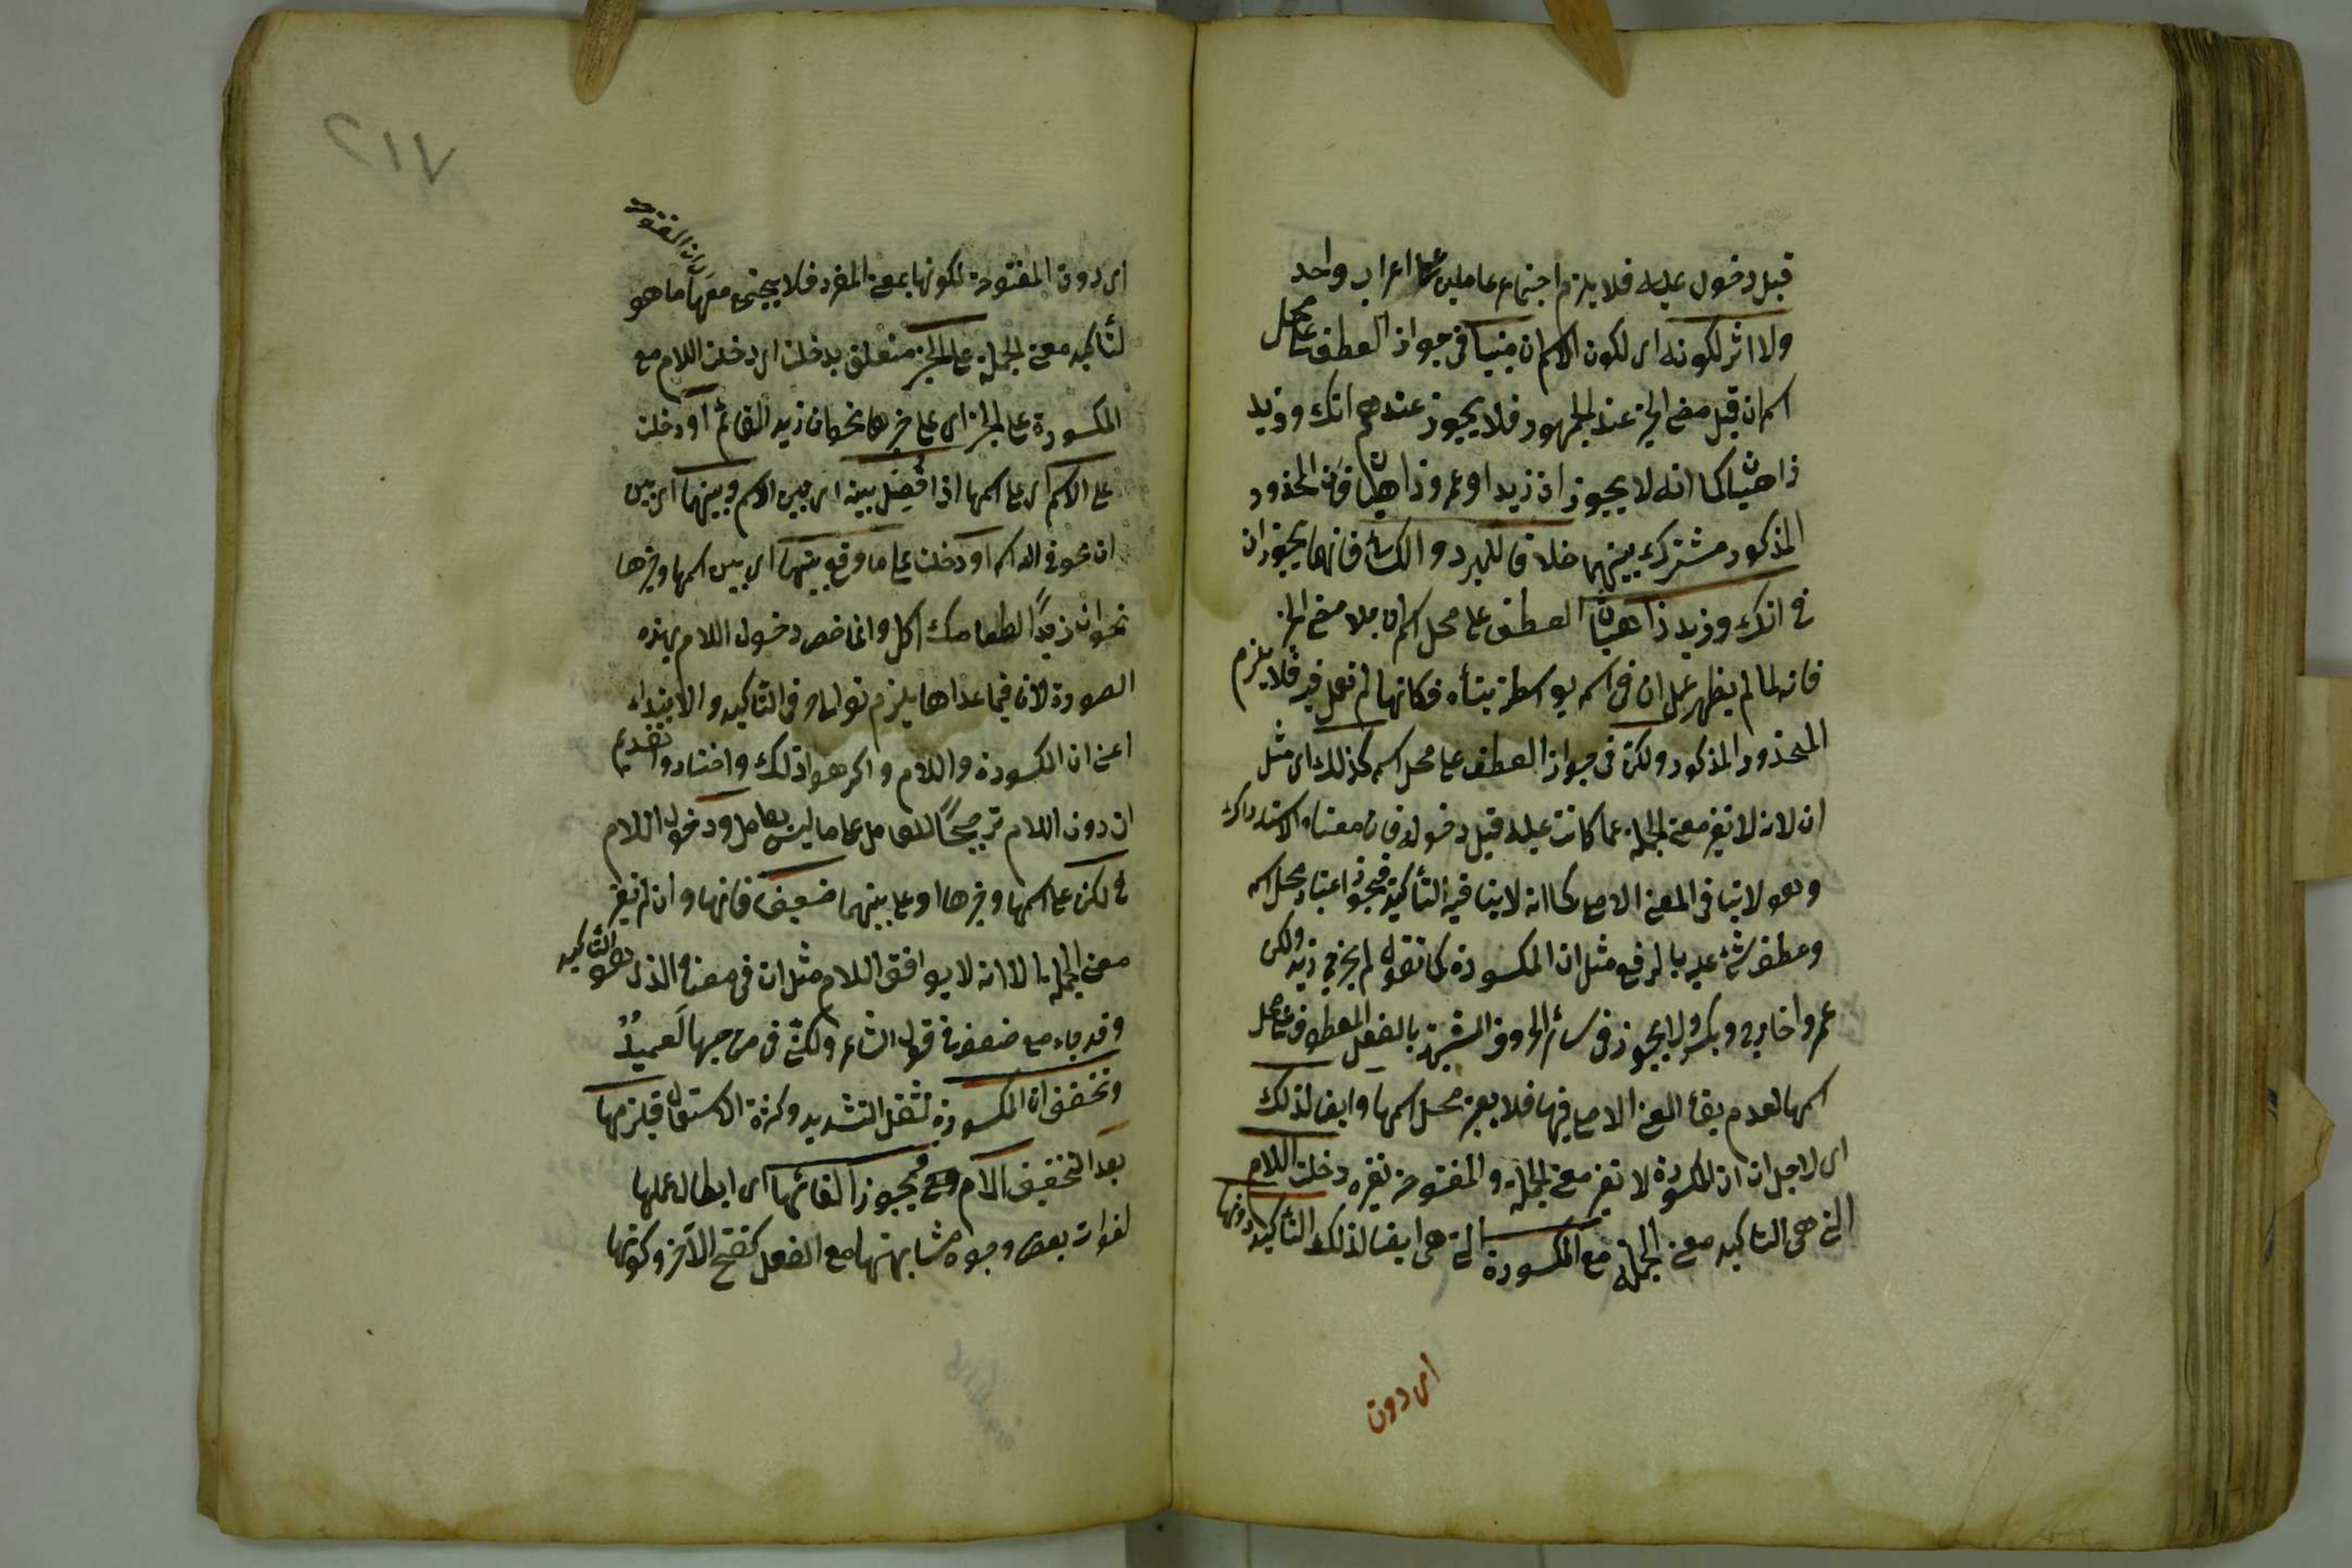 قبل دخول عليه فلا يلزم اجتماع عاملين على اعراب واحد
ولا اثر لكونه اى لكون اسم ان مبنيا فى جواز العطف على محل
اسم ان قبل مضى الخبر عند الجمهور فلا يجوز عندهم انك وزيد
ذاهبان كما انه لا يجوز ان زيدا وعمرو ذاهبان فان المحذور
المذكور مشترك بينهما خلافا للمبرد والكسائى فانهما يجوزان
فى انك وزيد ذاهبان العطف على محل اسم ان بلا مضى الخبر
فانه لما لم يظهر عمل ان فى اسمه بواسطة بنائه فكانها لم تعمل فيه فلا يلزم
المحذور المذكور ولكن فى جواز العطف على محل اسمه كذلك اى مثل
ان لانه لا تغير معنى الجملة عما كانت عليه قبل دخوله فان معناه الاستدراك
وهو لا ينافى المعنى الاصلى كما انه لا ينافيه التأكيد فيجوز اعتبار محل اسمه
وعطف شئ عليه بالرفع مثل ان المكسورة كما تقول لم يخرج زيد ولكن
عمروا خارج وبكر ولا يجوز فى سائر الحروف المشبهة بالفعل المعطوف على محل
اسمها لعدم بقاء المعنى الاصلى فيها فلا يعتبر محل اسمها وايضا لذلك
اى لاجل ان ان المكسورة لا تغير معنى الجملة والمفتوحة تغيره دخلت اللام
التى هى التاكيد معنى الجملة مع المكسورة التى هى ايضا لذلك التأكيد دونها
اى دون
٢١٧
اى دون المفتوحة لكونها بمعنى المفرد فلا يجتمع معها ما هو
لتأكيد معنى الجملة على الخبر متعلق بدخلت اى دخلت اللام مع
المكسورة على الخبر اى على خبرها نحو ان زيد القائم او دخلت
على الاسم اى على اسمها اذا فصل بينه اى بين الاسم وبينها اى بين
ان نحو فى الدار او دخلت على ما وقع بينهما اى بين اسمها وخبرها
نحو ان زيدًا لطعامك اكل وانما خص دخول اللام بهذه
الصورة لان فيما عداها يلزم توالى حرفى التاكيد والابتداء
اعنى ان المكسورة واللام واكرهوا ذلك واختاروا تقديم
ان دون اللام ترجيحًا للعامل على ما ليس بعامل ودخول اللام
فى لكن على اسمها وخبرها او على بينهما ضعيف فانها وان لم تغير
معنى الجملة الا انه لا يوافق اللام مثل ان فى معناه الذى هو التأكيد
وقد جاء مع ضعفه فى قول الشاعر ولكننى فى من حبها لعميدُ
وتخفف ان المكسورة لثقل التشديد وكثرة الاستعمال فيلزمها
بعد التخفيف اللام ويجوز الغائها اى ابطال عملها
لفوات بعض وجوه مشابهتها مع الفعل كفتح الآخر وكونها